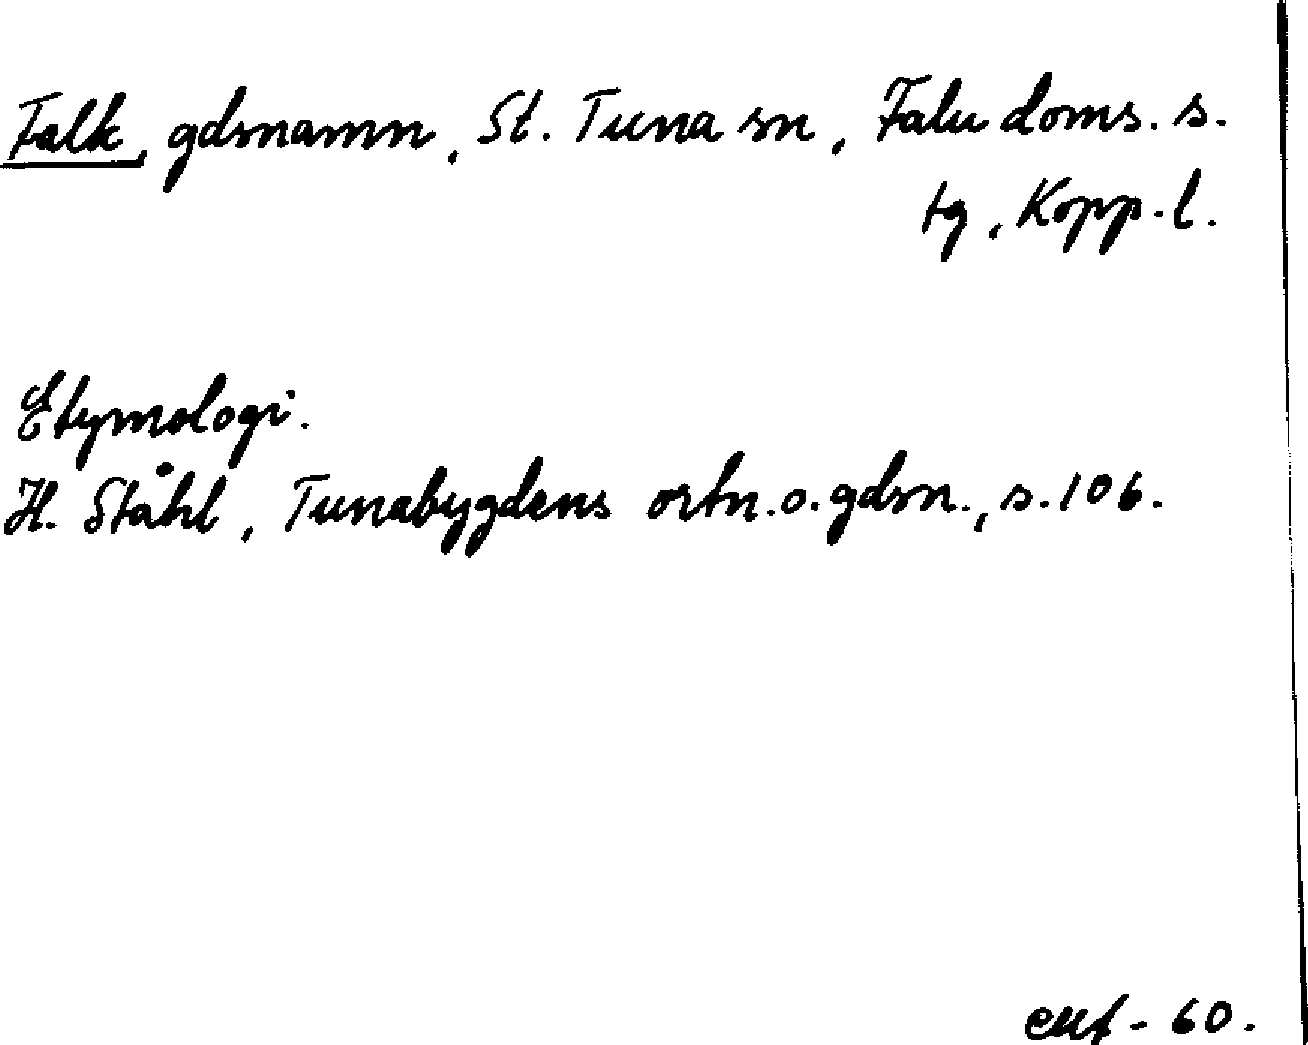 Falk, gdsnamn, St. Tuna sn, Falu doms. s.
tg, Kopp. l.
Etymologi.
H. Ståhl, Tunabygdens ortn. o. gdsn., s. 106.
- 60.